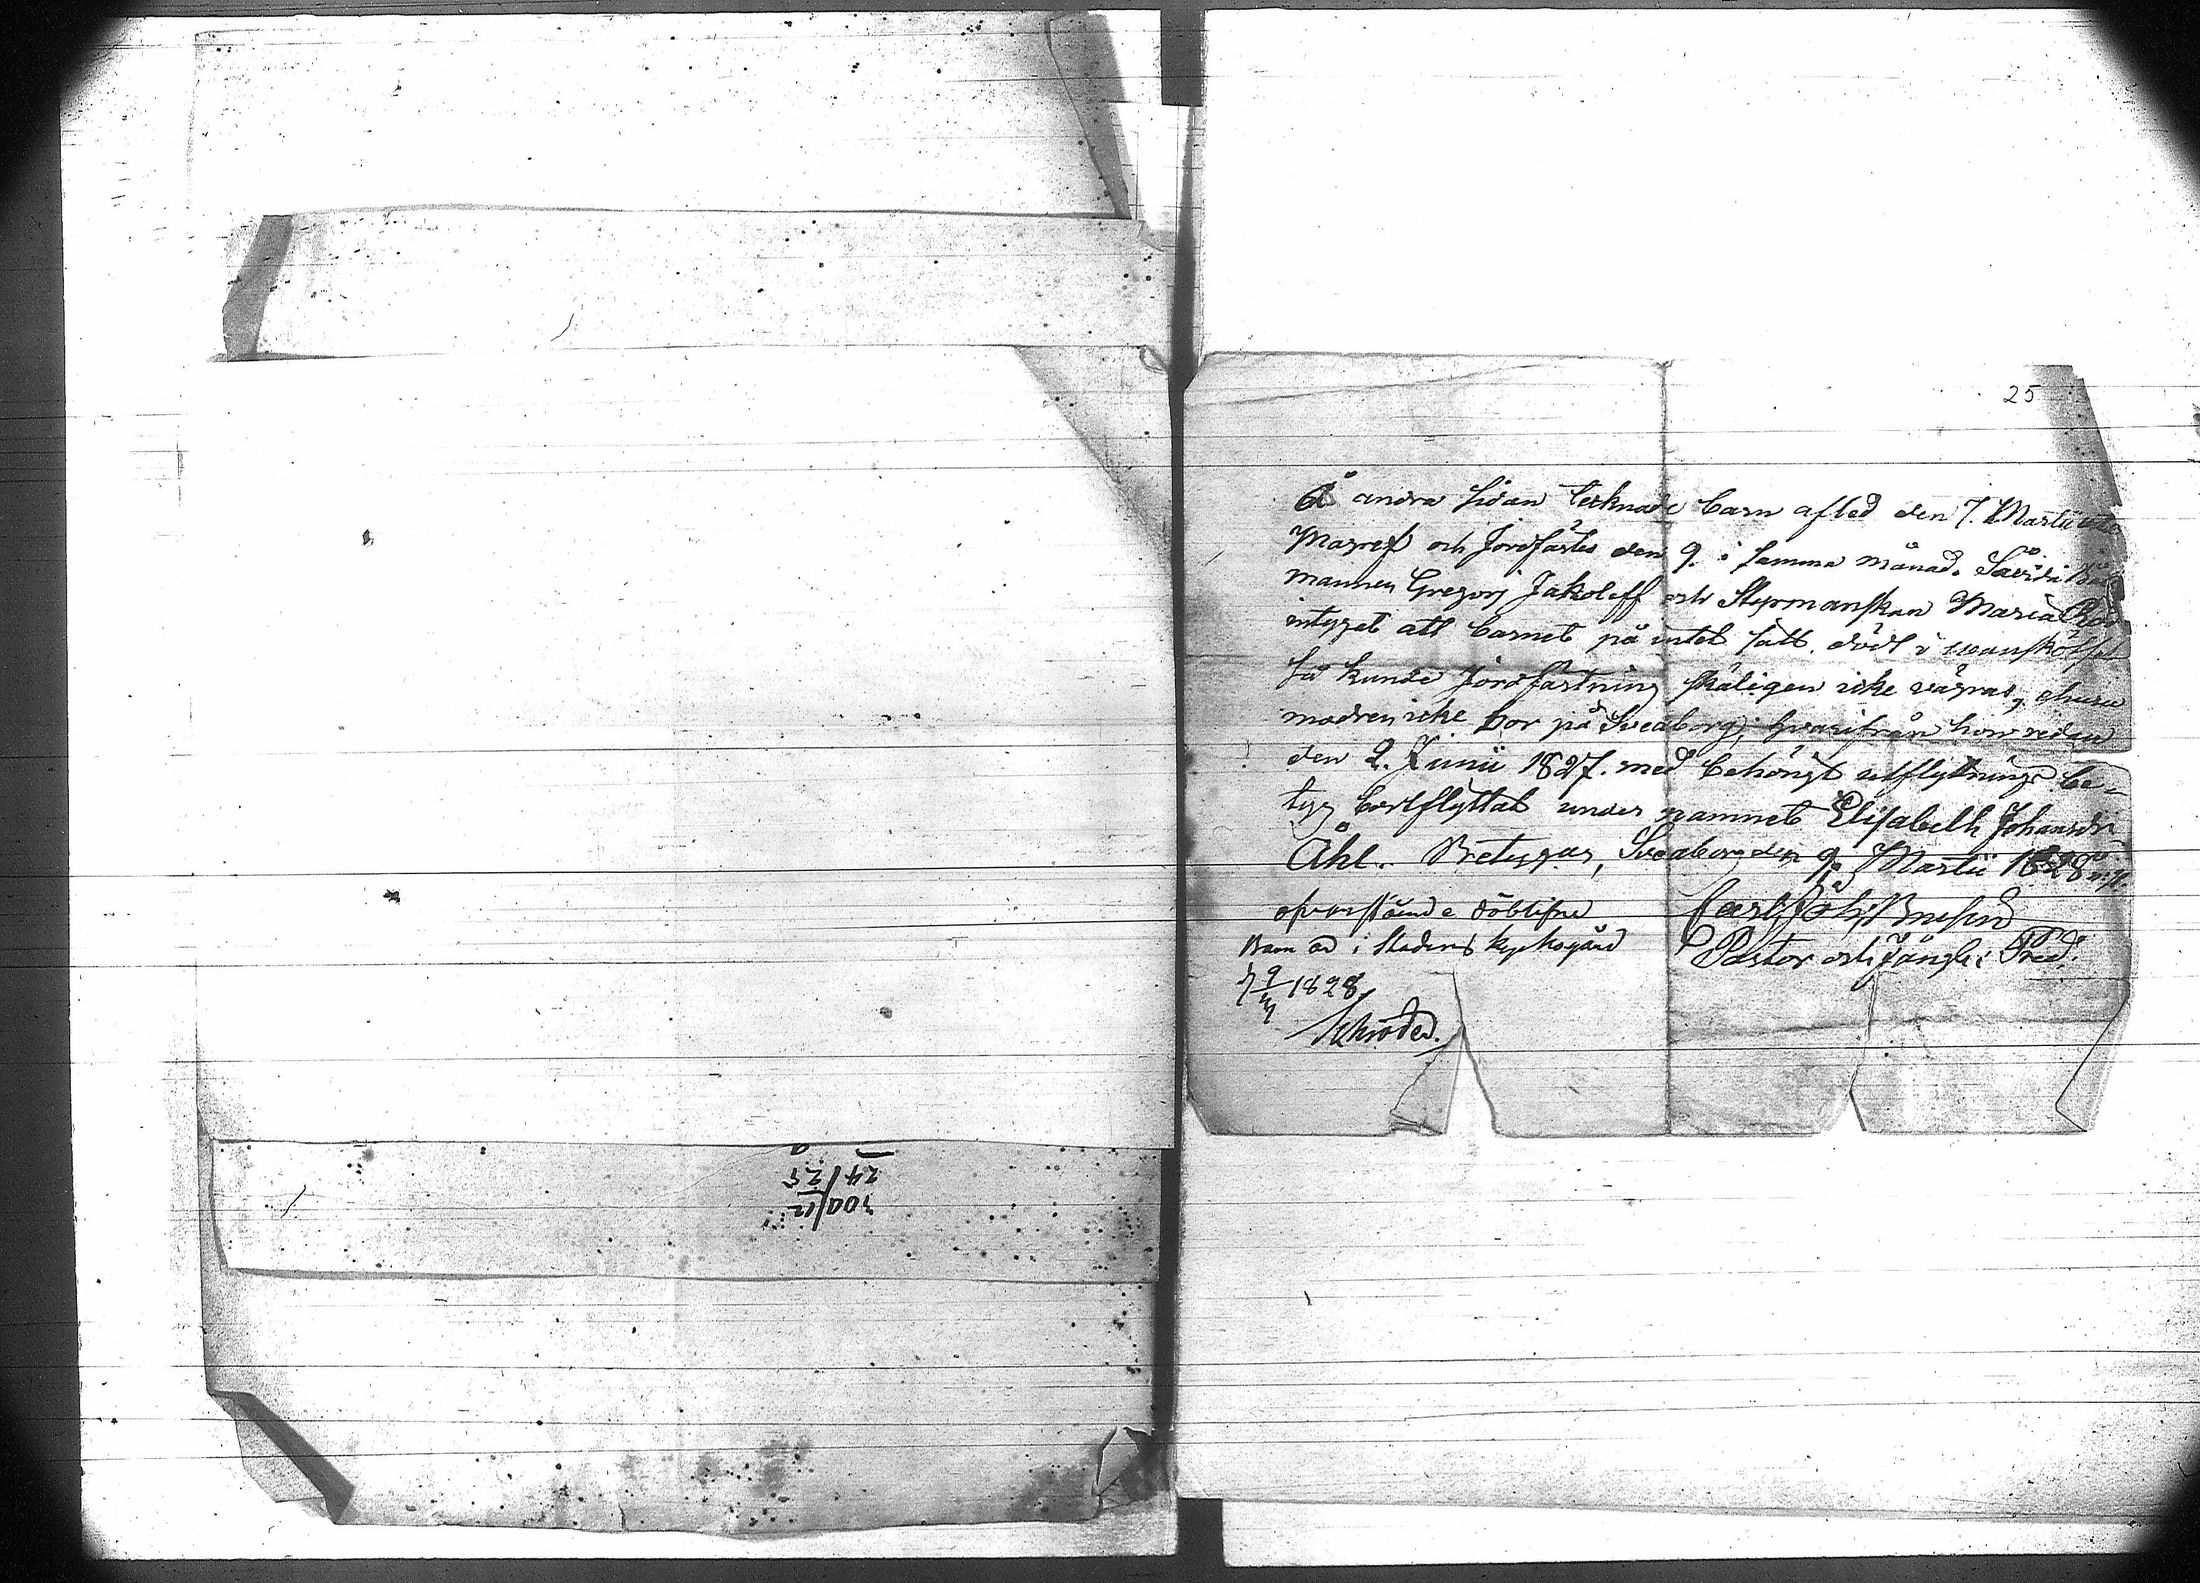 25
Å andra sidan tecknade barn afled den 7. Martii
och Jordfästes den 9. i samma månad. Såvida
mannen Gregorj Jakoleff och Styrmanskan Maria
intyget att barnet på intet sätt dödt i wanskötsel
så kunde Jordfästning skäligen icke vägras, ehuru
modren icke bor på Sveaborg, hvarifrån hon redan
den 2. Junii 1827. med behörigt utflyttnings be-
tyg bortflyttat under namnet Elisabeth Johansdr
Åhl. Betygar, Sveaborg den 9. Martii 1828
ofvanstående döblifne Carl Joh:
Barn är i Stadens kyrkogård Pastor och Fängelse Pred.
d 9/3 1828
Schröder.
24/25
300/12